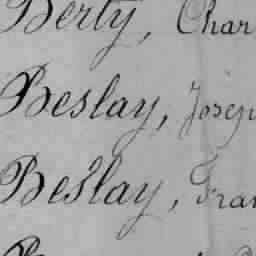 Berty, Char
Beslay, Josep
Beslay, Fran